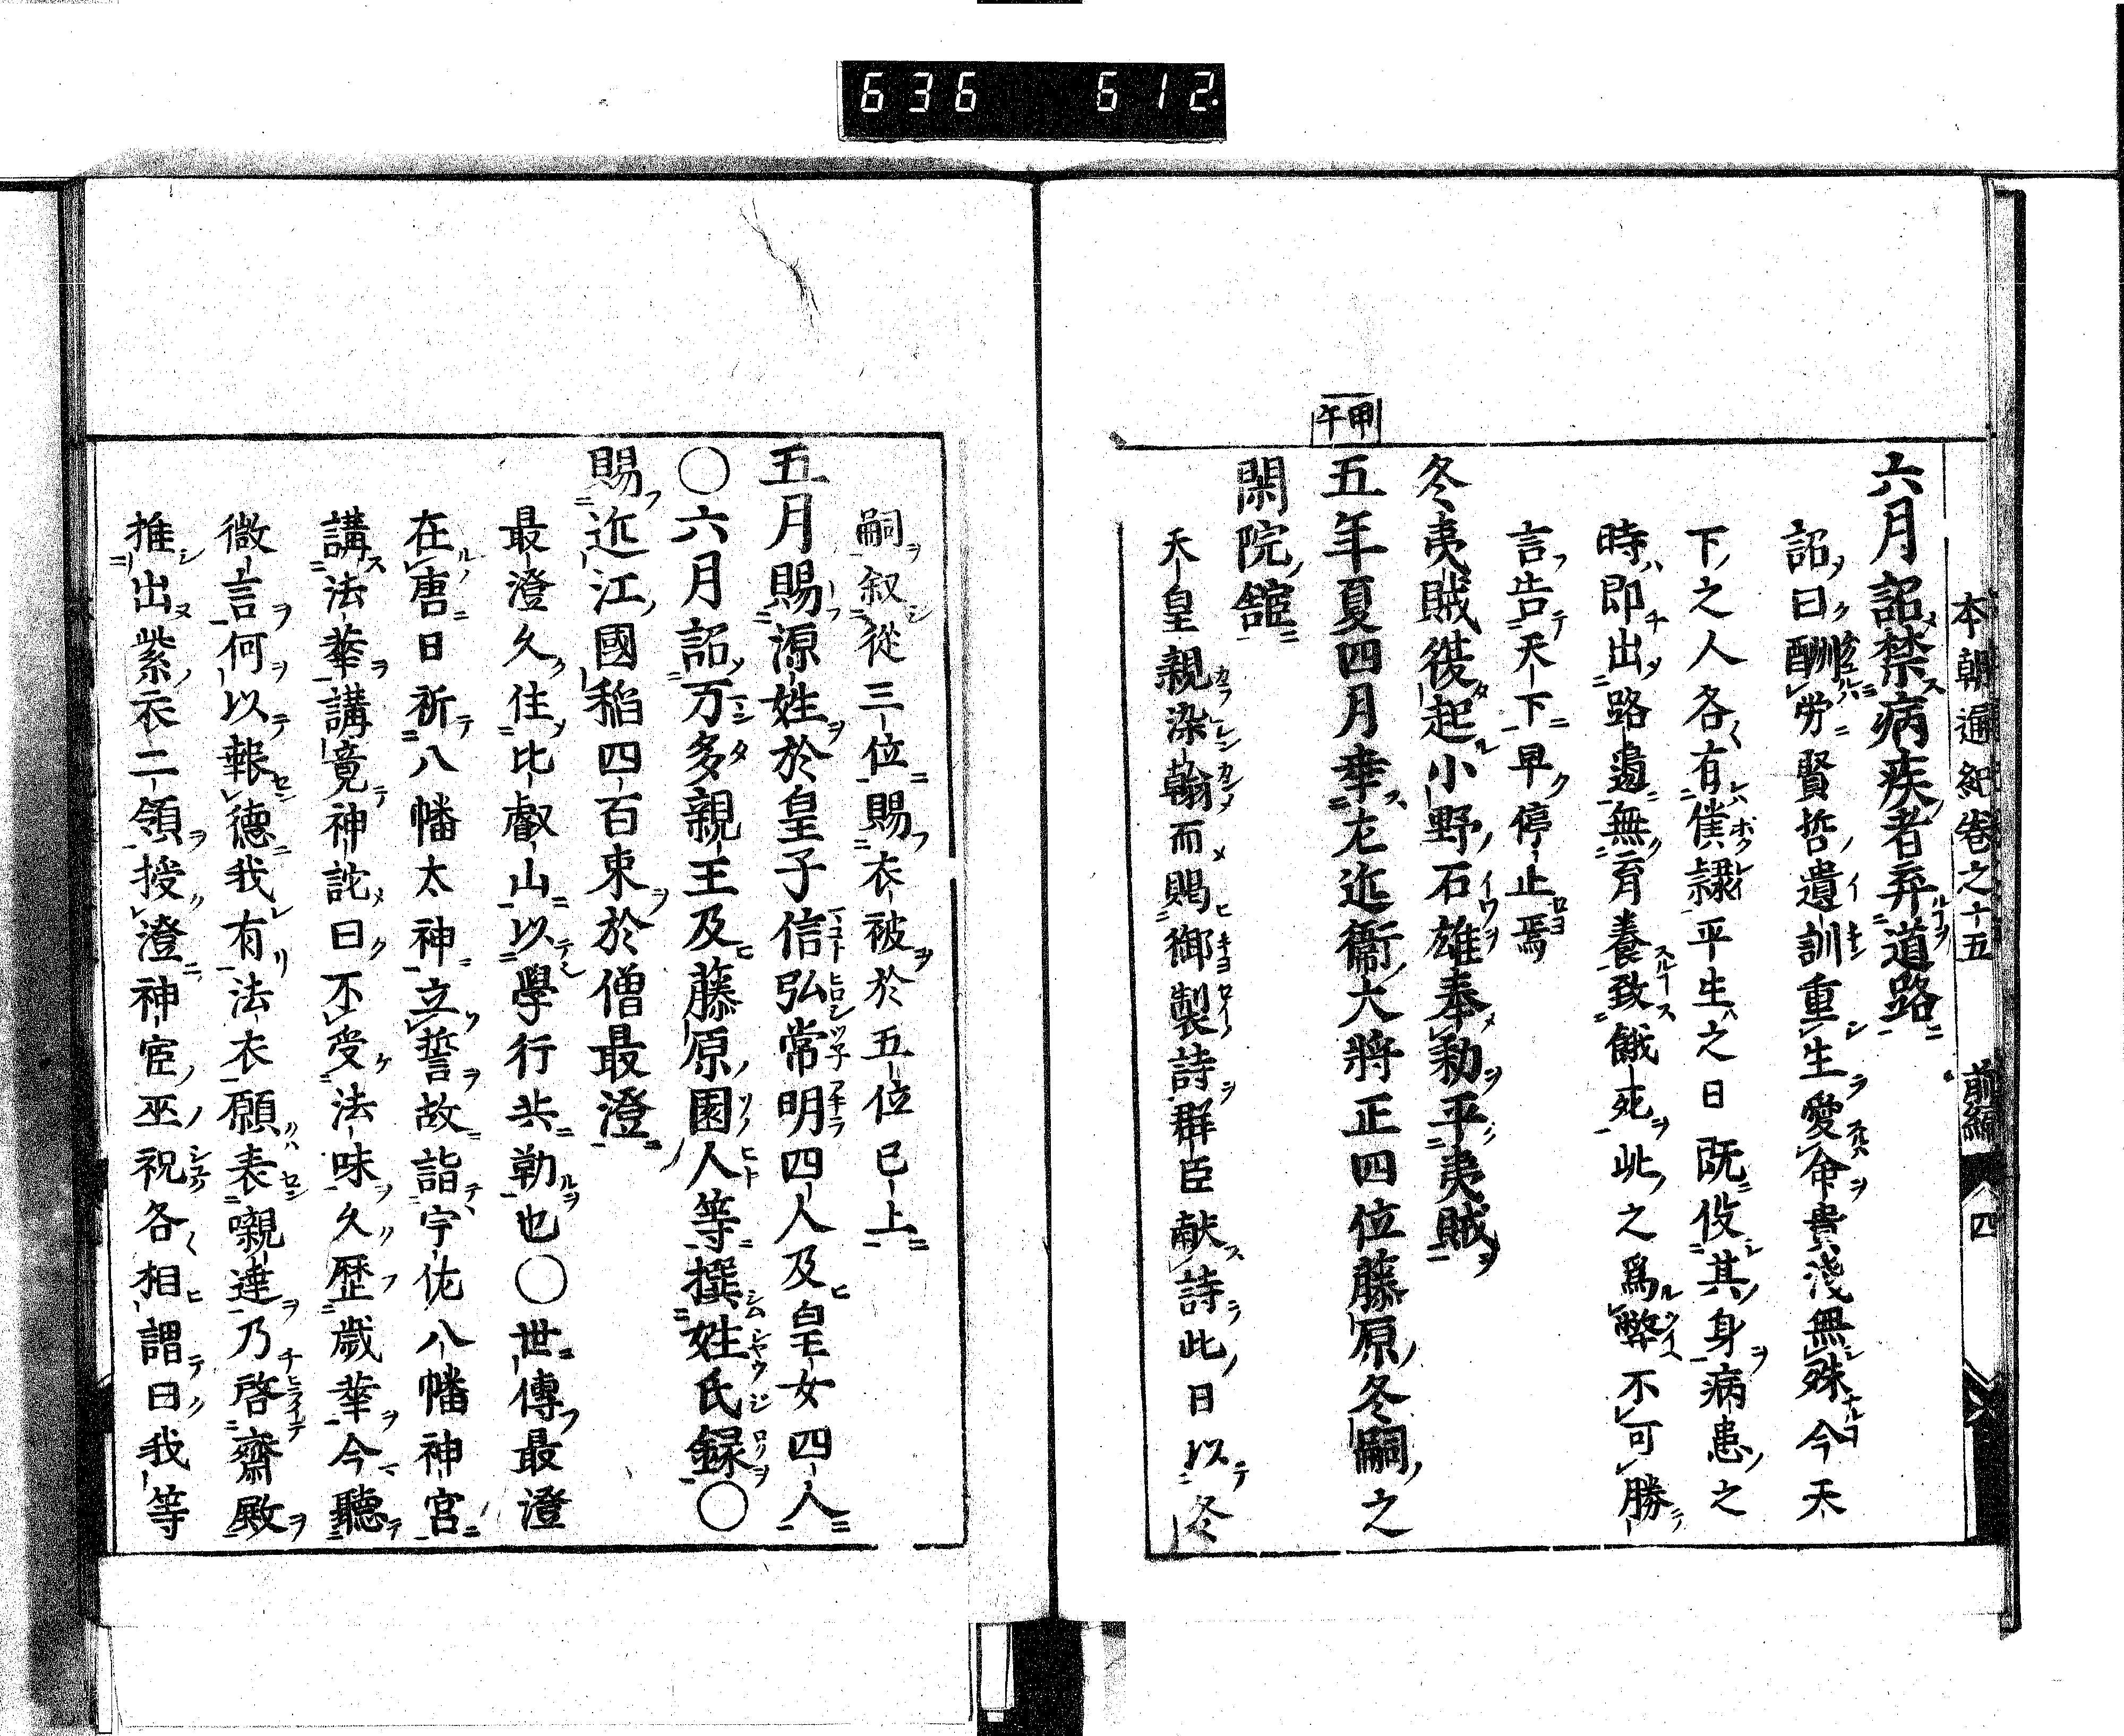 636 612.
本朝通紀卷之十五 前編 四
六月詔禁病疾者弃道路
詔曰酬労賢哲遺訓重生愛命貴淺無殊今天
下之人各有僕隷平生之日既伇其身病患之
時即出路邉無育養致餓死此之爲弊不可勝
言告天下早停止焉
冬夷賊復起小野石雄奉勅平夷賊
甲午
五年夏四月幸左近衞大將正四位藤原冬嗣之
閑院舘
天皇親染翰而賜御製詩群臣献詩此日以冬
嗣叙從三位賜衣被於五位已上
五月賜源姓於皇子信弘常明四人及皇女四人
〇六月詔万多親王及藤原園人等撰姓氏録〇
賜近江國稲四百束於僧最澄
最澄久住比叡山以學行共勤也〇世傳最澄
在唐日祈八幡太神立誓故詣宇佐八幡神宮
講法華講竟神詫曰不受法味久歴歳華今聽
微言何以報德我有法衣願表嚫達乃啓齋殿
推出紫衣二領授澄神宦巫祝各相謂曰我等